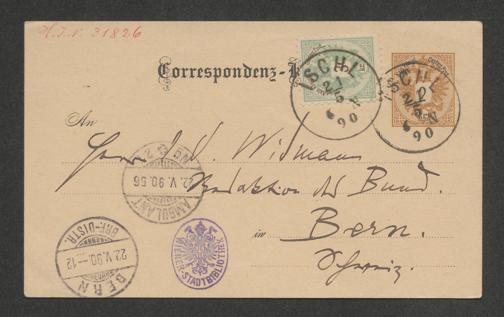 H.I.N. 31826
Correspondenz-K
ISCHL
21/5
6-N
90
ISCHL
2/5
6-N
90
An
Herrn J. V. Widmann
Redaktion des Bund.
in Bern.
Schweiz.
AMBULANT
22.V.90.56
BERN
BRF.-DISTR.
22.V.90.-12
WIENER-STADTBIBLIOTHEK